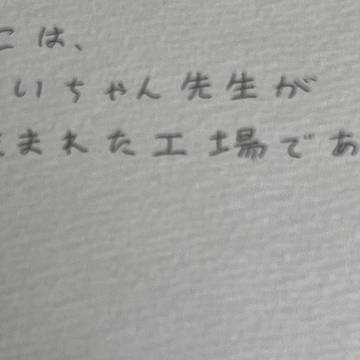 こは、
いちゃん先生が
まれた工場であ